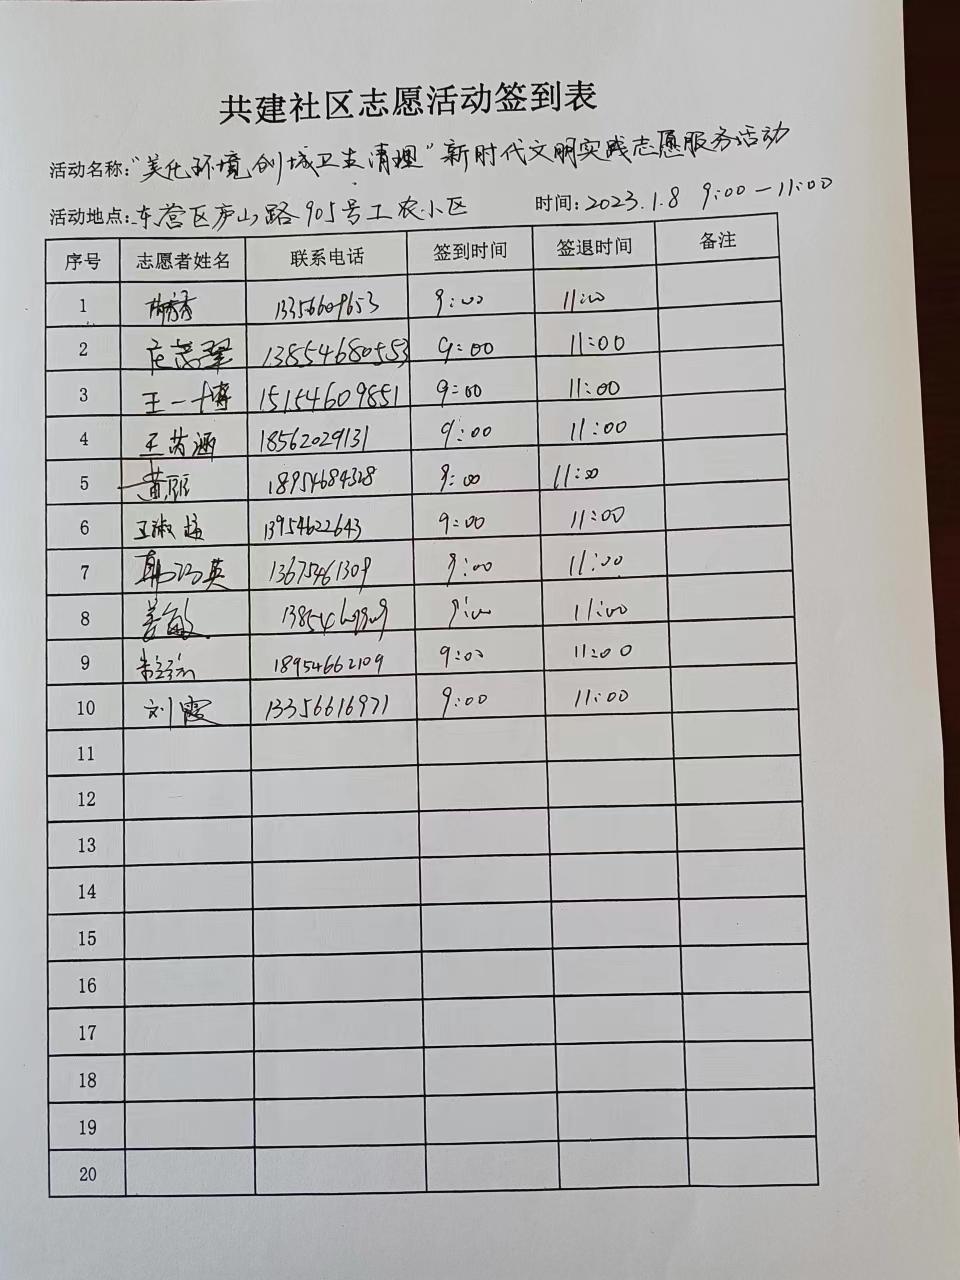 共建社区志愿活动签到表
活动名称:"美化环境创城卫生清理"新时代文明实践志愿服务活动
活动地点:东营区庐山路905号工农小区 时间:2023.1.8 9:00-11:00
序号 志愿者姓名 联系电话 签到时间 签退时间 备注
1 13356609653 9:00 11:00
2 13854680553 9:00 11:00
3 王一博 15154609851 9:00 11:00
4 王芮涵 18562029131 9:00 11:00
5 黄丽 18954684328 9:00 11:00
6 王淑 13954622643 9:00 11:00
7 英 13675461309 9:00 11:00
8 姜敏 9:00 11:00
9 18954662109 9:00 11:00
10 刘霞 13356616971 9:00 11:00
11
12
13
14
15
16
17
18
19
20